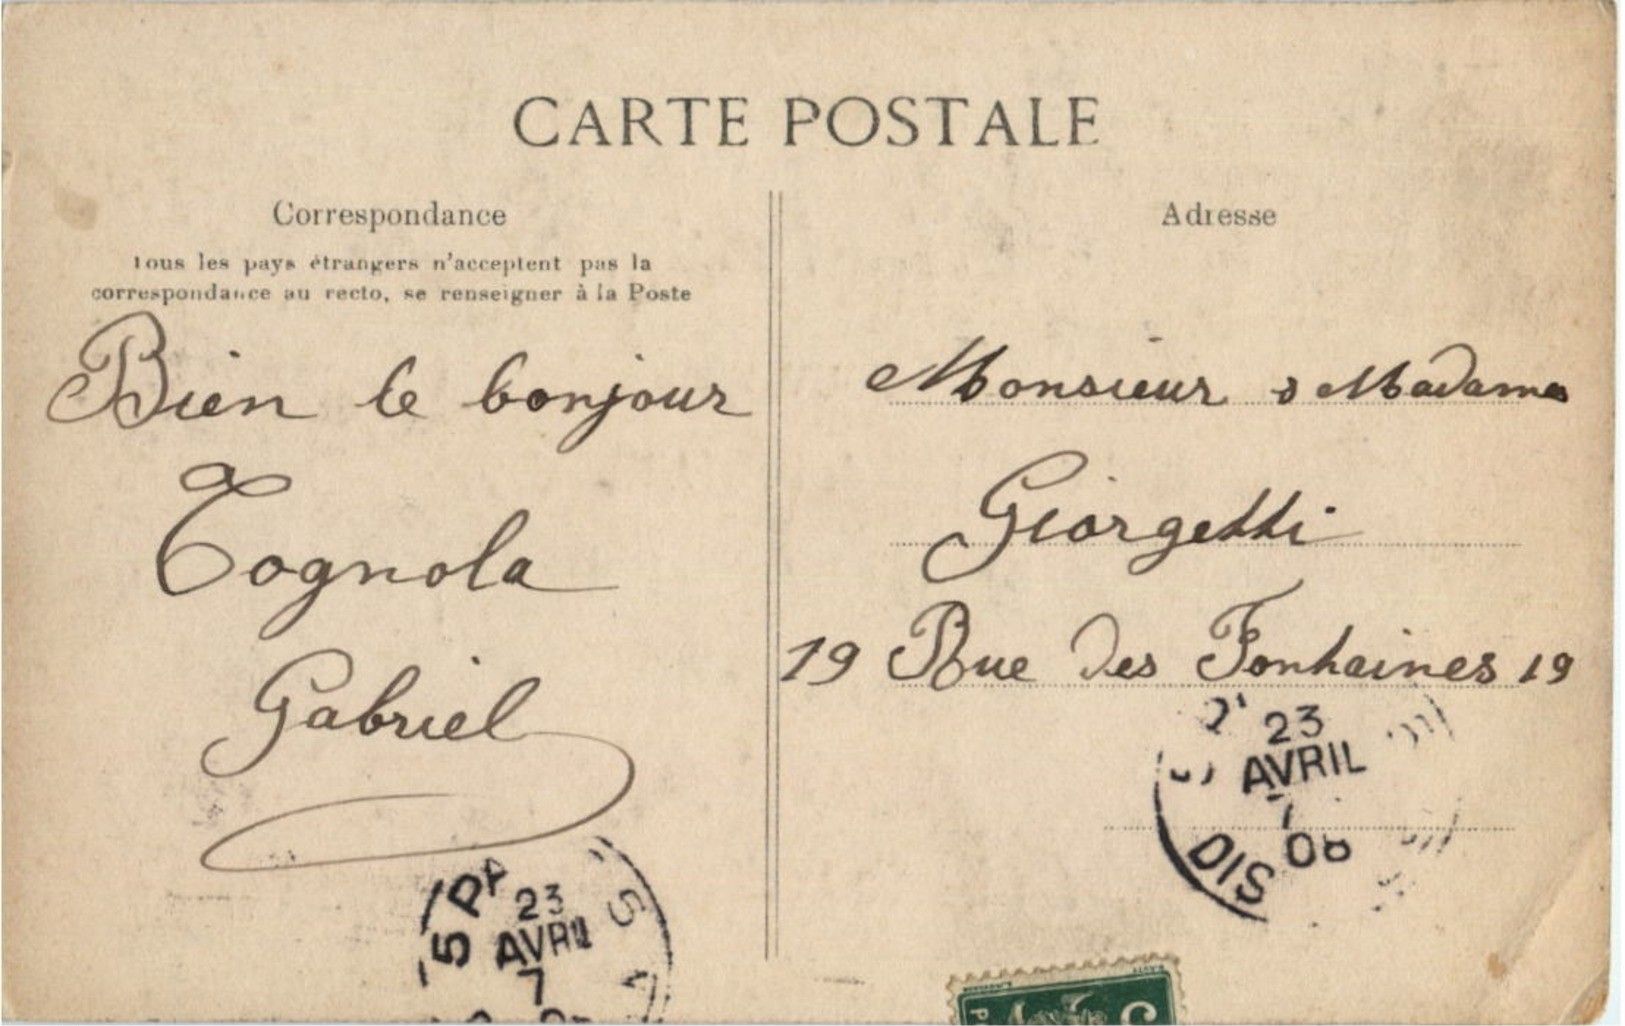 CARTE POSTALE
Correspondance
Tous les pays étrangers n'acceptent pas la
correspondance au recto, se renseigner à la Poste
Bien le bonjour
Tognola
Gabriel
Adresse
Monsieur & Madame
Giorgetti
19 Rue des Fontaines 19
23
AVRIL
08
DIS
5
23
AVRIL
7